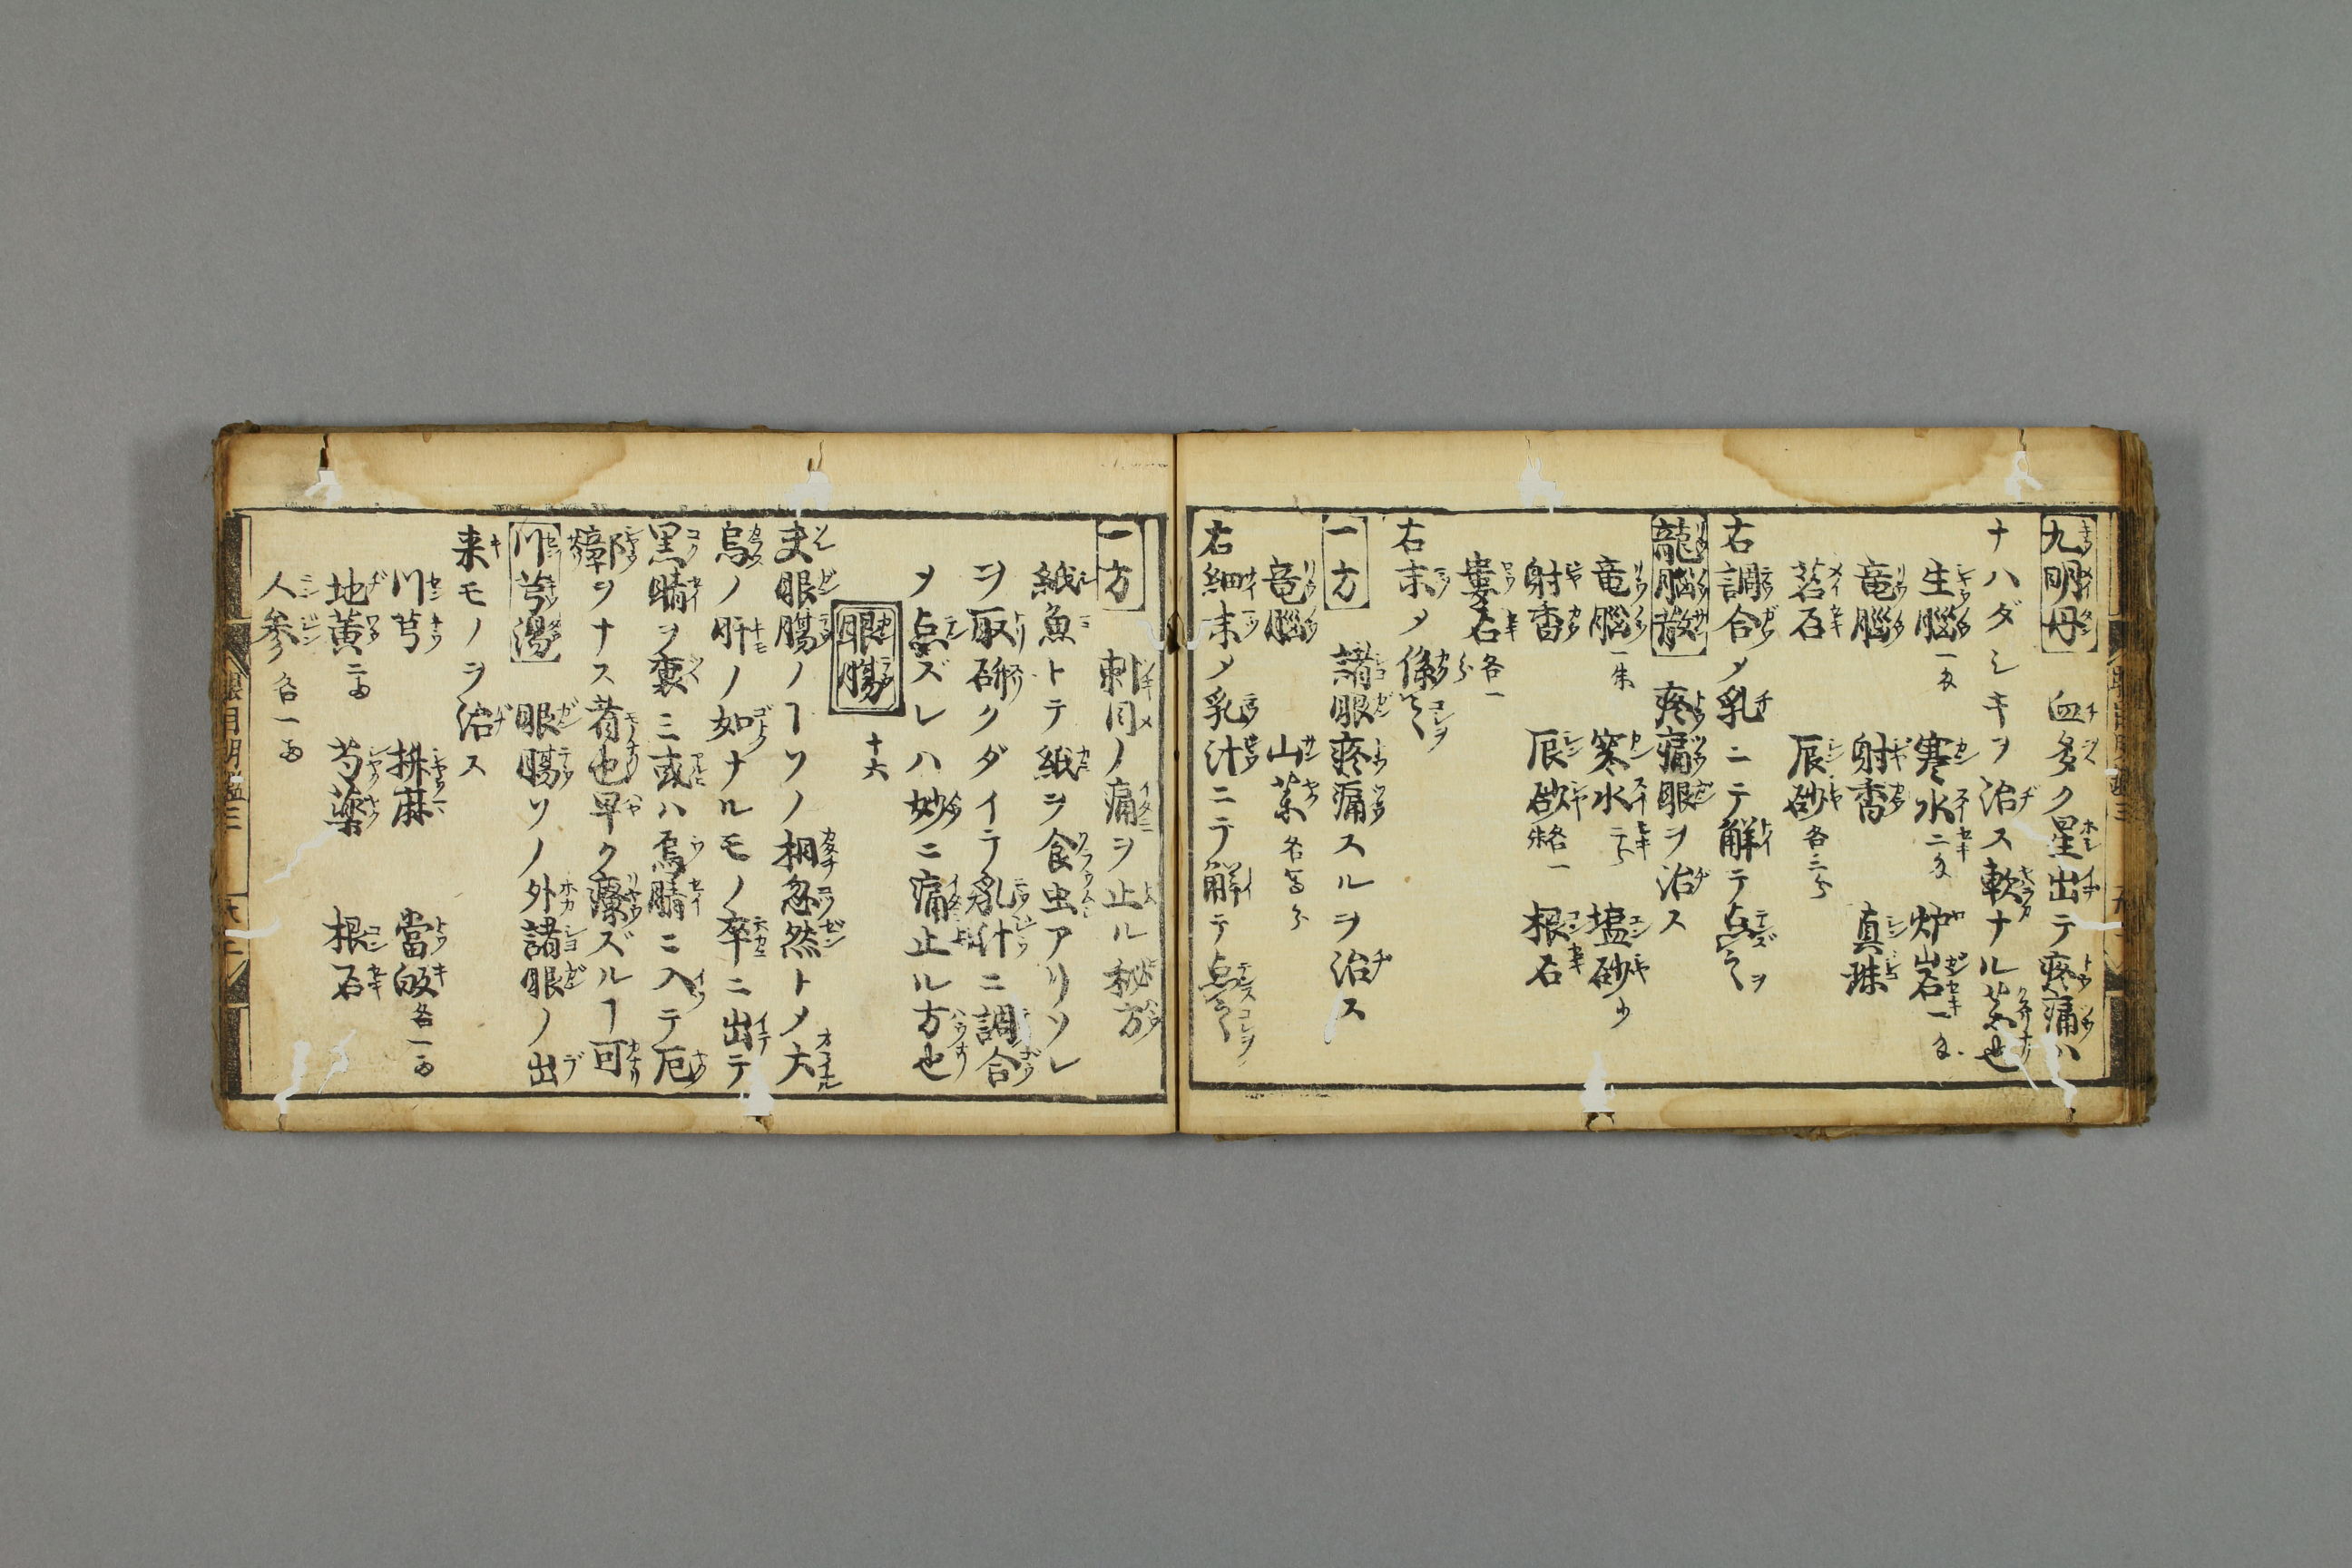 九明丹 血多ク星出テ疼痛ハ
ナハダシキヲ治ス軟ナル薬也
生腦一匁 寒水二匁 炉岩石一匁
竜腦 射香 真珠
茗石 辰砂各三分
右調合メ乳ニテ解テ点之
龍腦散 疼痛眼ヲ治ス
竜腦一朱 寒水二分 塩砂少
射香 辰砂各一朱 根石
婁石各一分
右末メ係之
一方 諸眼疼痛スルヲ治ス
竜腦 山薬各等分
右細末メ乳汁ニテ解テ点之
一方 刺目ノ痛ヲ止ル秘方
紙魚トテ紙ヲ食虫アリソレ
ヲ取研クダイテ乳汁ニ調合
メ点ズレハ妙ニ痛止ル方也
眼腸 十六
夫眼腸ノヿソノ相忽然トメ大
烏ノ肝ノ如ナルモノ卒ニ出テ
黒睛ヲ裹ミ或ハ烏睛ニ入テ厄
障ヲナス者也早ク療ズルヿ可
川芎湯 眼腸ソノ外諸眼ノ出
来モノヲ治ス
川芎 升麻 當皈各一両
地黄二両 芍薬 根石
人参各一両
眼目明鑑三